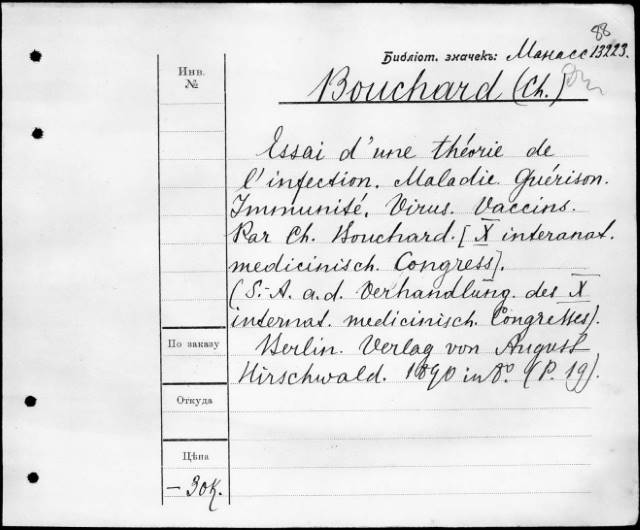 88
Библіот. значекъ: Манасс 13223.
Инв.
№
Bouchard (Ch.)
Essai d'une théorie de
l'infection. Maladie. Guérison.
Immunité. Virus. Vaccins.
Par Ch. Bouchard. [X interanat.
medicinisch. Congress].
(S.-A. a. d. Verhandlung. des X
internat. medicinisch. Congresses).
По заказу
Berlin. Verlag von August
Hirschwald. 1890 in 8º. (P. 19).
Откуда
Цѣна
— 30 к.